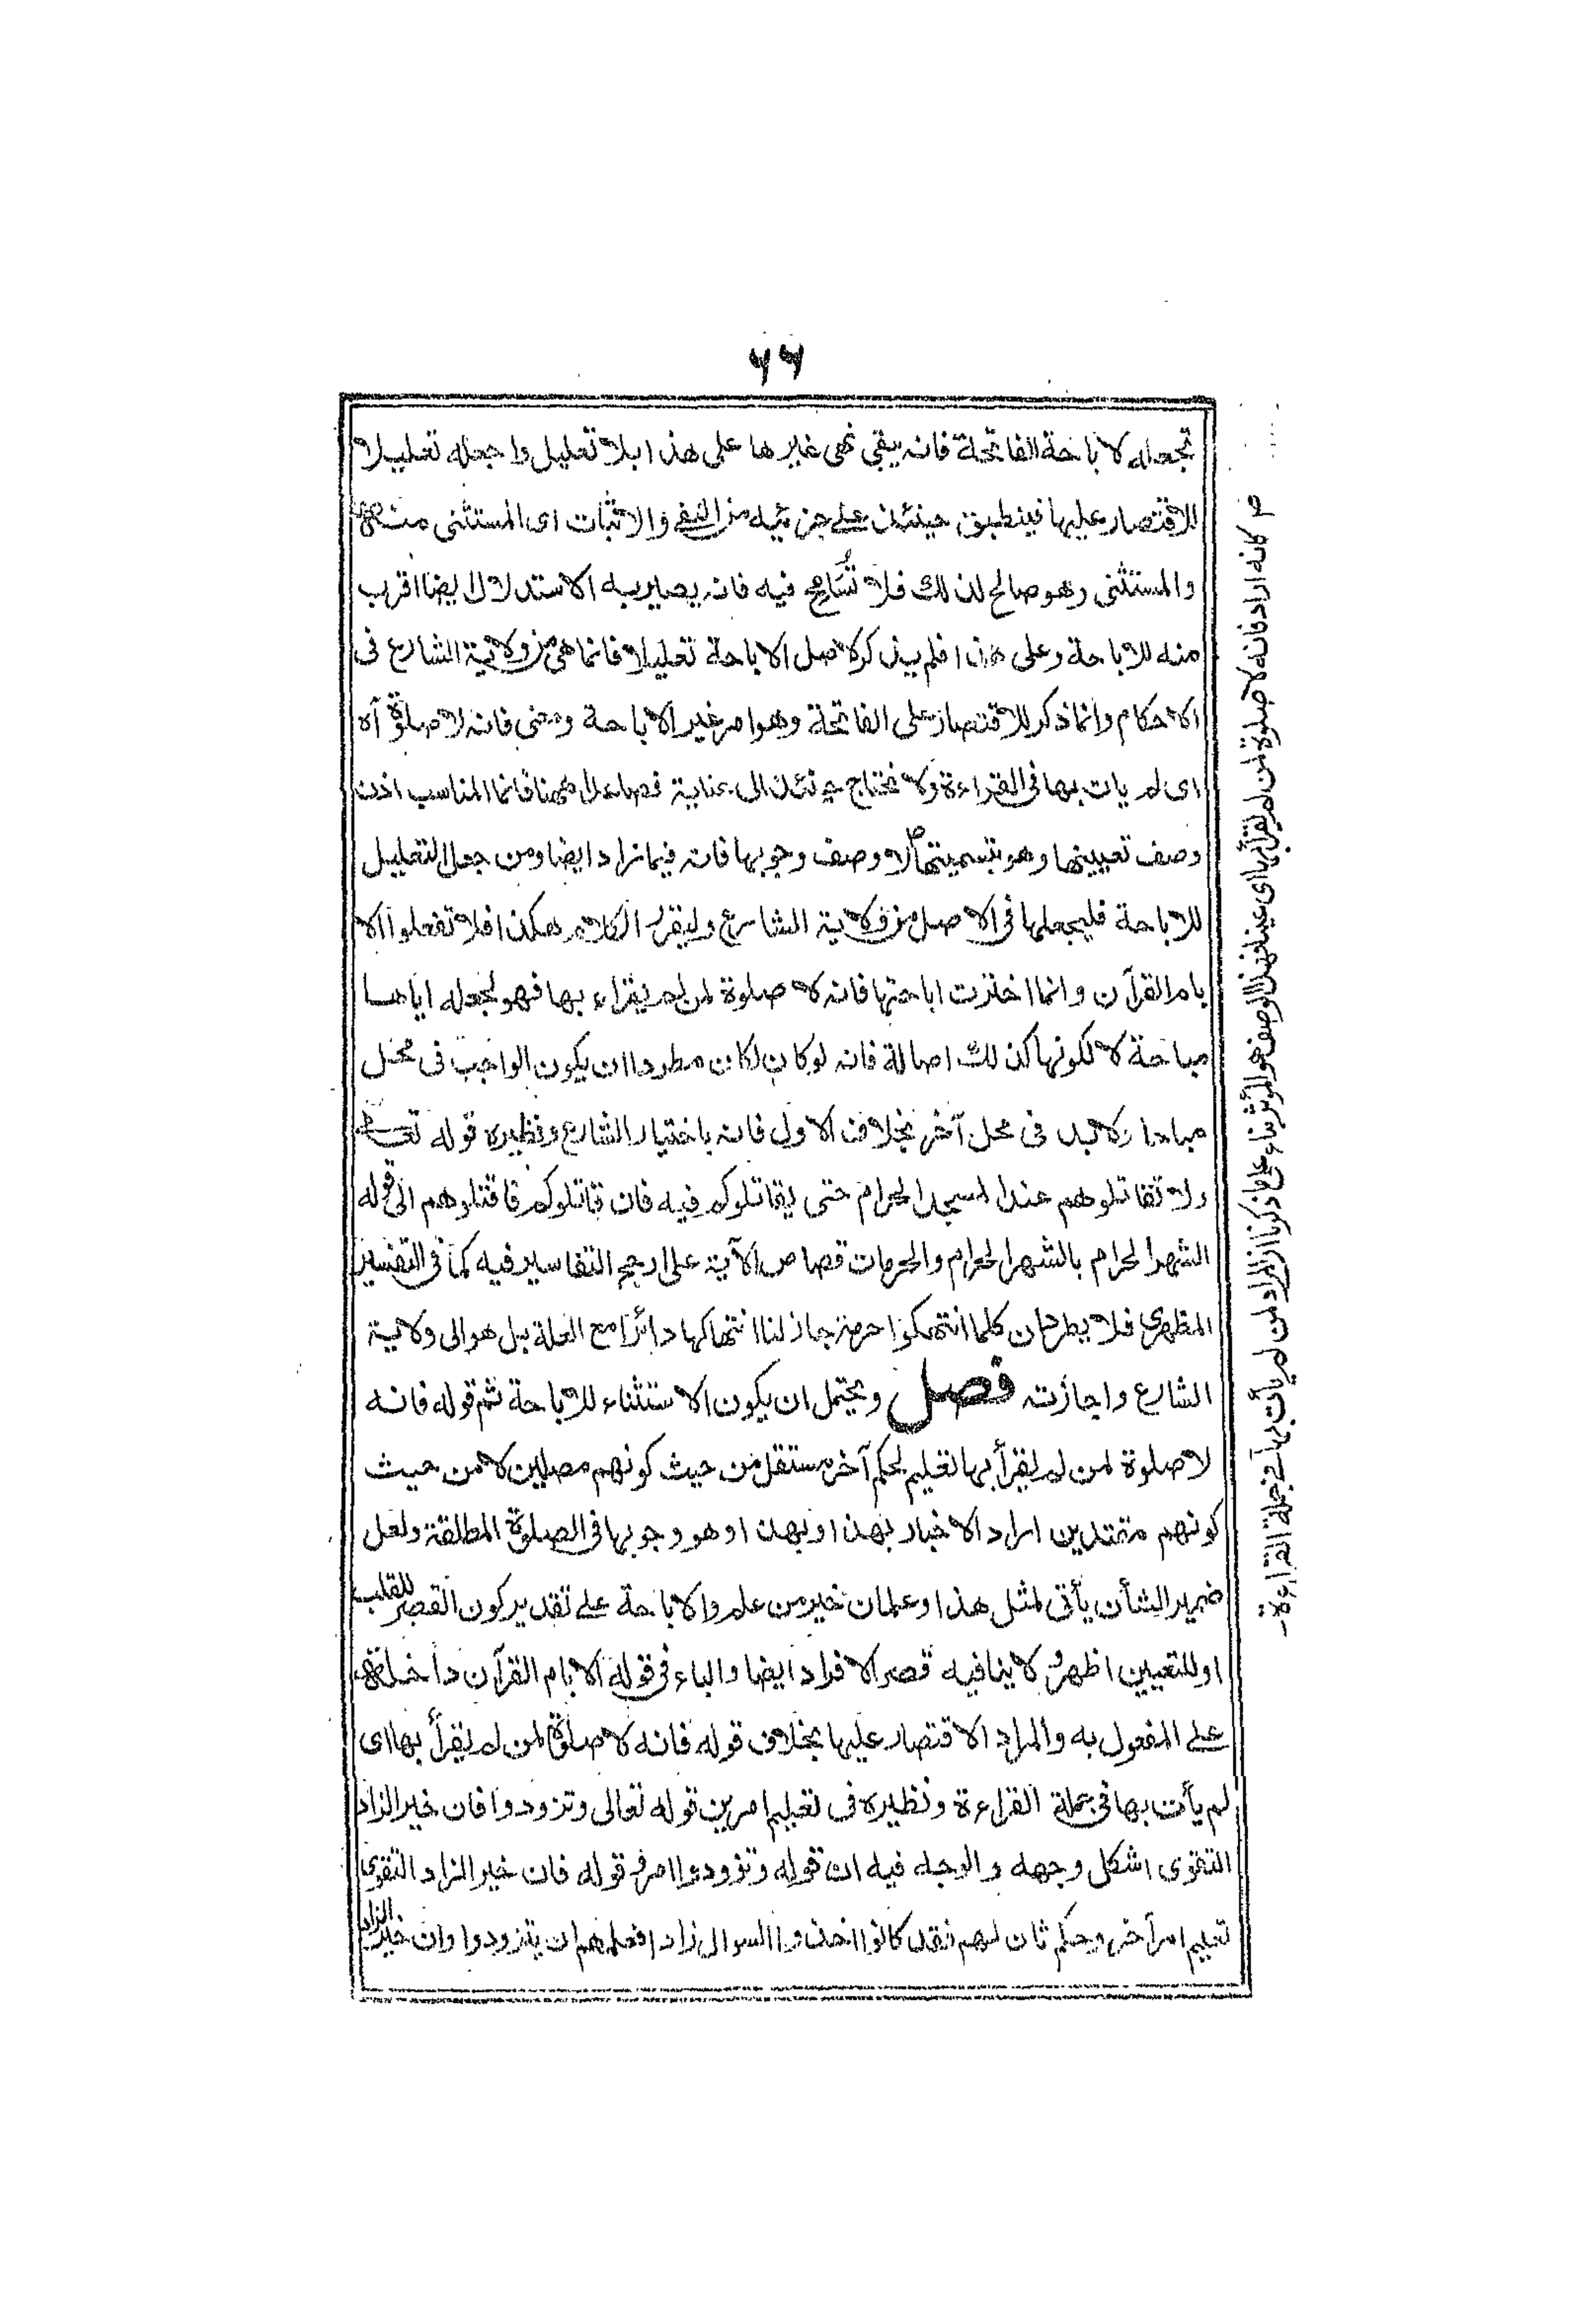 ٦٦
تجعله لاباحة الفاتحة فانه يبقى نهى غيرها على هذا بلا تعليل واجعله تعليلا
للاقتصار عليها فينطبق حينئذ على جزئيه من النفى والاثبات اى المستثنى منه
والمستثنى وهو صالح لذلك فلا تسامح فيه فانه يصير به الاستدلال ايضا اقرب
منه للاباحة وعلى هذا فلم يذكر لاصل الاباحة تعليلا فانما هى من ولاية الشارع فى
الاحكام وانما ذكر للاقتصار على الفاتحة وهو امر غير الاباحة ومعنى فانه لا صلوة آه
اى لم يات بها فى القراءة ولا نحتاج حينئذ الى عناية فصاعدا ههنا فانما المناسب اذن
وصف تعيينها وهو بتسميتها لا وصف وجوبها فانه فيما زاد ايضا ومن جعل التعليل
للاباحة فليجعلها فى الاصل من ولاية الشارع وليقرر الكلام هكذا فلا تفعلوا الا
بام القرآن وانما اخترت اباحتها فانه لا صلوة لمن لم يقراء بها فهو لجعله اياها
مباحة لا لكونها كذلك اصالة فانه لو كان لكان مطردا ان يكون الواجب فى محل
مباحا ولابد فى محل آخر بخلاف الاول فانه باختيار الشارع ونظيره قوله تعالى
ولا تقاتلوهم عند المسجد الحرام حتى يقاتلوكم فيه فان قاتلوكم فاقتلوهم الى قوله
الشهر الحرام بالشهر الحرام والحرمات قصاص الآية على ارجح التفاسير فيه كما فى التفسير
المظهرى فلا يطرد ان كلما انتهكوا حرمة جاز لنا انتهاكها دائرا مع العلة بل هو الى ولاية
الشارع واجازته فصل ويحتمل ان يكون الاستثناء للاباحة ثم قوله فانه
لا صلوة لمن لم يقرأ بها تعليم لحكم آخر مستقل من حيث كونهم مصلين لا من حيث
كونهم مقتدين اراد الاخبار بهذا وبهذا وهو وجوبها فى الصلوة المطلقة ولعل
ضمير الشأن يأتى لمثل هذا وعلمان خير من علم والاباحة على تقدير كون القصر للقلب
او للتعيين اظهر ولا ينافيه قصر الافراد ايضا والباء فى قوله الا بام القرآن داخلة
على المفعول به والمراد الاقتصار عليها بخلاف قوله فانه لا صلوة لمن لم يقرأ بها اى
لم يأت بها فى جملة القراءة ونظيره فى تعليم امرين قوله تعالى وتزودوا فان خير الزاد
التقوى اشكل وجهه والوجه فيه ان قوله وتزودوا امر وقوله فان خير الزاد التقوى
تعليم امر آخر وحكم ثان لهم فقد كانوا اتخذوا السوال زادا فعلمهم ان يتزودوا وان خير الزاد
كانه اراد فانه لا صلوة لمن لم يقرأ بها اى عينا فهذا الوصف هو المؤثر بناء على ما ذكرنا ان المراد لمن لم يأت بها فى جملة القراءة